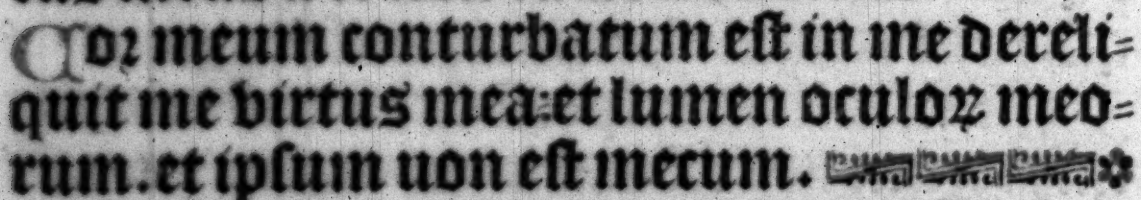 Coꝛ meum conturbatum eſt in me dereli⸗
quit me virtus mea⸗et lumen oculoꝝ meo⸗
rum. et ipſum uon eſt mecum.